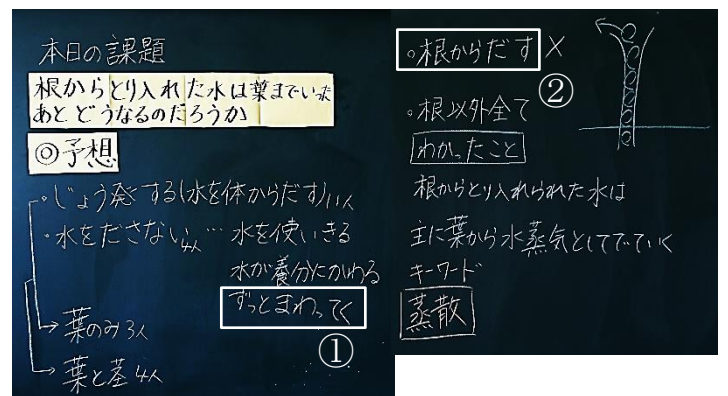 本日の課題
根からとり入れた水は葉までいった
あとどうなるのだろうか
◎予想
・じょう発する(水を体からだす)11人
・水をださない4人…水を使いきる
水が養分にかわる
ずっとまわってく
①
→葉のみ3人
→葉と茎4人
。根からだす ×
②
。根以外全て
わかったこと
根からとり入れられた水は
主に葉から水蒸気としてでていく
キーワード
蒸散